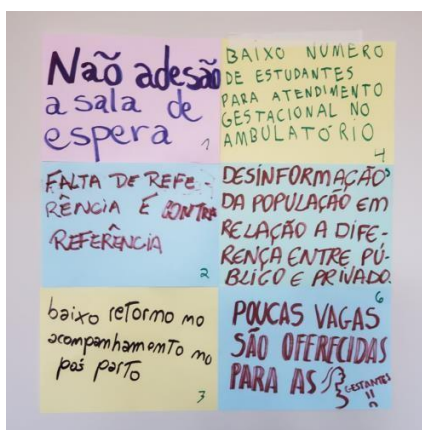 Naõ adesão
a sala de
espera
1
FALTA DE REFE-
RÊNCIA E CONTRA
REFERÊNCIA
2
baixo retorno no
acompanhamento no
pós parto
3
BAIXO NUMERO
DE ESTUDANTES
PARA ATENDIMENTO
GESTACIONAL NO
AMBULATÓRIO
4
DESINFORMAÇÃO
DA POPULAÇÃO EM
RELAÇÃO A DIFE-
RENÇA ENTRE PÚ-
BLICO E PRIVADO.
5
POUCAS VAGAS
SÃO OFERECIDAS
PARA AS
GESTANTES
!!
6